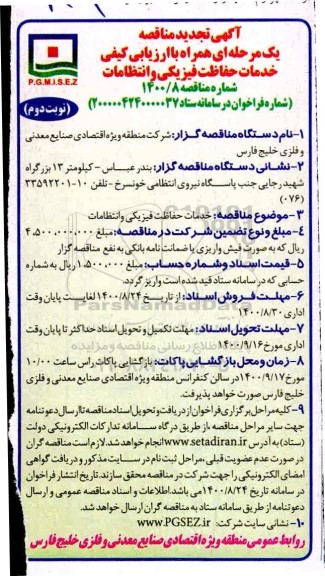 آگهی تجدید مناقصه
یک مرحله‌ای همراه با ارزیابی کیفی
خدمات حفاظت فیزیکی و انتظامات
شماره مناقصه ۱۴۰۰/۸
(شماره فراخوان در سامانه ستاد ۲۰۰۰۰۰۴۲۴۰۰۰۰۰۳۷)
P.G.M.I.S.E.Z
(نوبت دوم)
۱- نام دستگاه مناقصه گزار: شرکت منطقه ویژه اقتصادی صنایع معدنی
و فلزی خلیج فارس
۲- نشانی دستگاه مناقصه گزار: بندرعباس - کیلومتر ۱۳ بزرگراه
شهید رجایی جنب پاسگاه نیروی انتظامی خونسرخ - تلفن ۱۰-۳۳۵۹۲۲۰۱
(۰۷۶)
۳- موضوع مناقصه: خدمات حفاظت فیزیکی وانتظامات
۴- مبلغ و نوع تضمین شرکت در مناقصه: مبلغ ۴,۵۰۰,۰۰۰,۰۰۰
ریال که به صورت فیش واریزی یا ضمانت نامه بانکی به نفع مناقصه گزار
۵- قیمت اسناد وشماره حساب: مبلغ ۱,۵۰۰,۰۰۰ ریال به شماره
حسابی که در سامانه ستاد قید شده است واریز گردد.
۶- مهلت فروش اسناد: از تاریخ ۱۴۰۰/۸/۲۴ لغایت پایان وقت
اداری ۱۴۰۰/۸/۳۰
۷- مهلت تحویل اسناد: مهلت تکمیل و تحویل اسناد حداکثر تا پایان وقت
اداری مورخ ۱۴۰۰/۹/۱۶
۸- زمان و محل بازگشایی پاکات: بازگشایی پاکات راس ساعت ۱۰/۰۰
مورخ ۱۴۰۰/۹/۱۷ در سالن کنفرانس منطقه ویژه اقتصادی صنایع معدنی و فلزی
خلیج فارس صورت خواهد پذیرفت.
۹- کلیه مراحل برگزاری فراخوان از دریافت و تحویل اسناد مناقصه تا ارسال دعوتنامه
جهت سایر مراحل مناقصه، از طریق درگاه سامانه تدارکات الکترونیکی دولت
(ستاد) به آدرس www.setadiran.ir انجام خواهد شد. لازم است مناقصه گران
در صورت عدم عضویت قبلی، مراحل ثبت نام در سایت مذکور و دریافت گواهی
امضای الکترونیکی را جهت شرکت در مناقصه محقق سازند. تاریخ انتشار فراخوان
در سامانه تاریخ ۱۴۰۰/۸/۲۴ می باشد. اطلاعات و اسناد مناقصه عمومی و ارسال
دعوتنامه از طریق سامانه ستاد به مناقصه گران ارسال خواهد شد.
۱۰- نشانی سایت شرکت: www.PGSEZ.ir
روابط عمومی منطقه ویژه اقتصادی صنایع معدنی و فلزی خلیج فارس